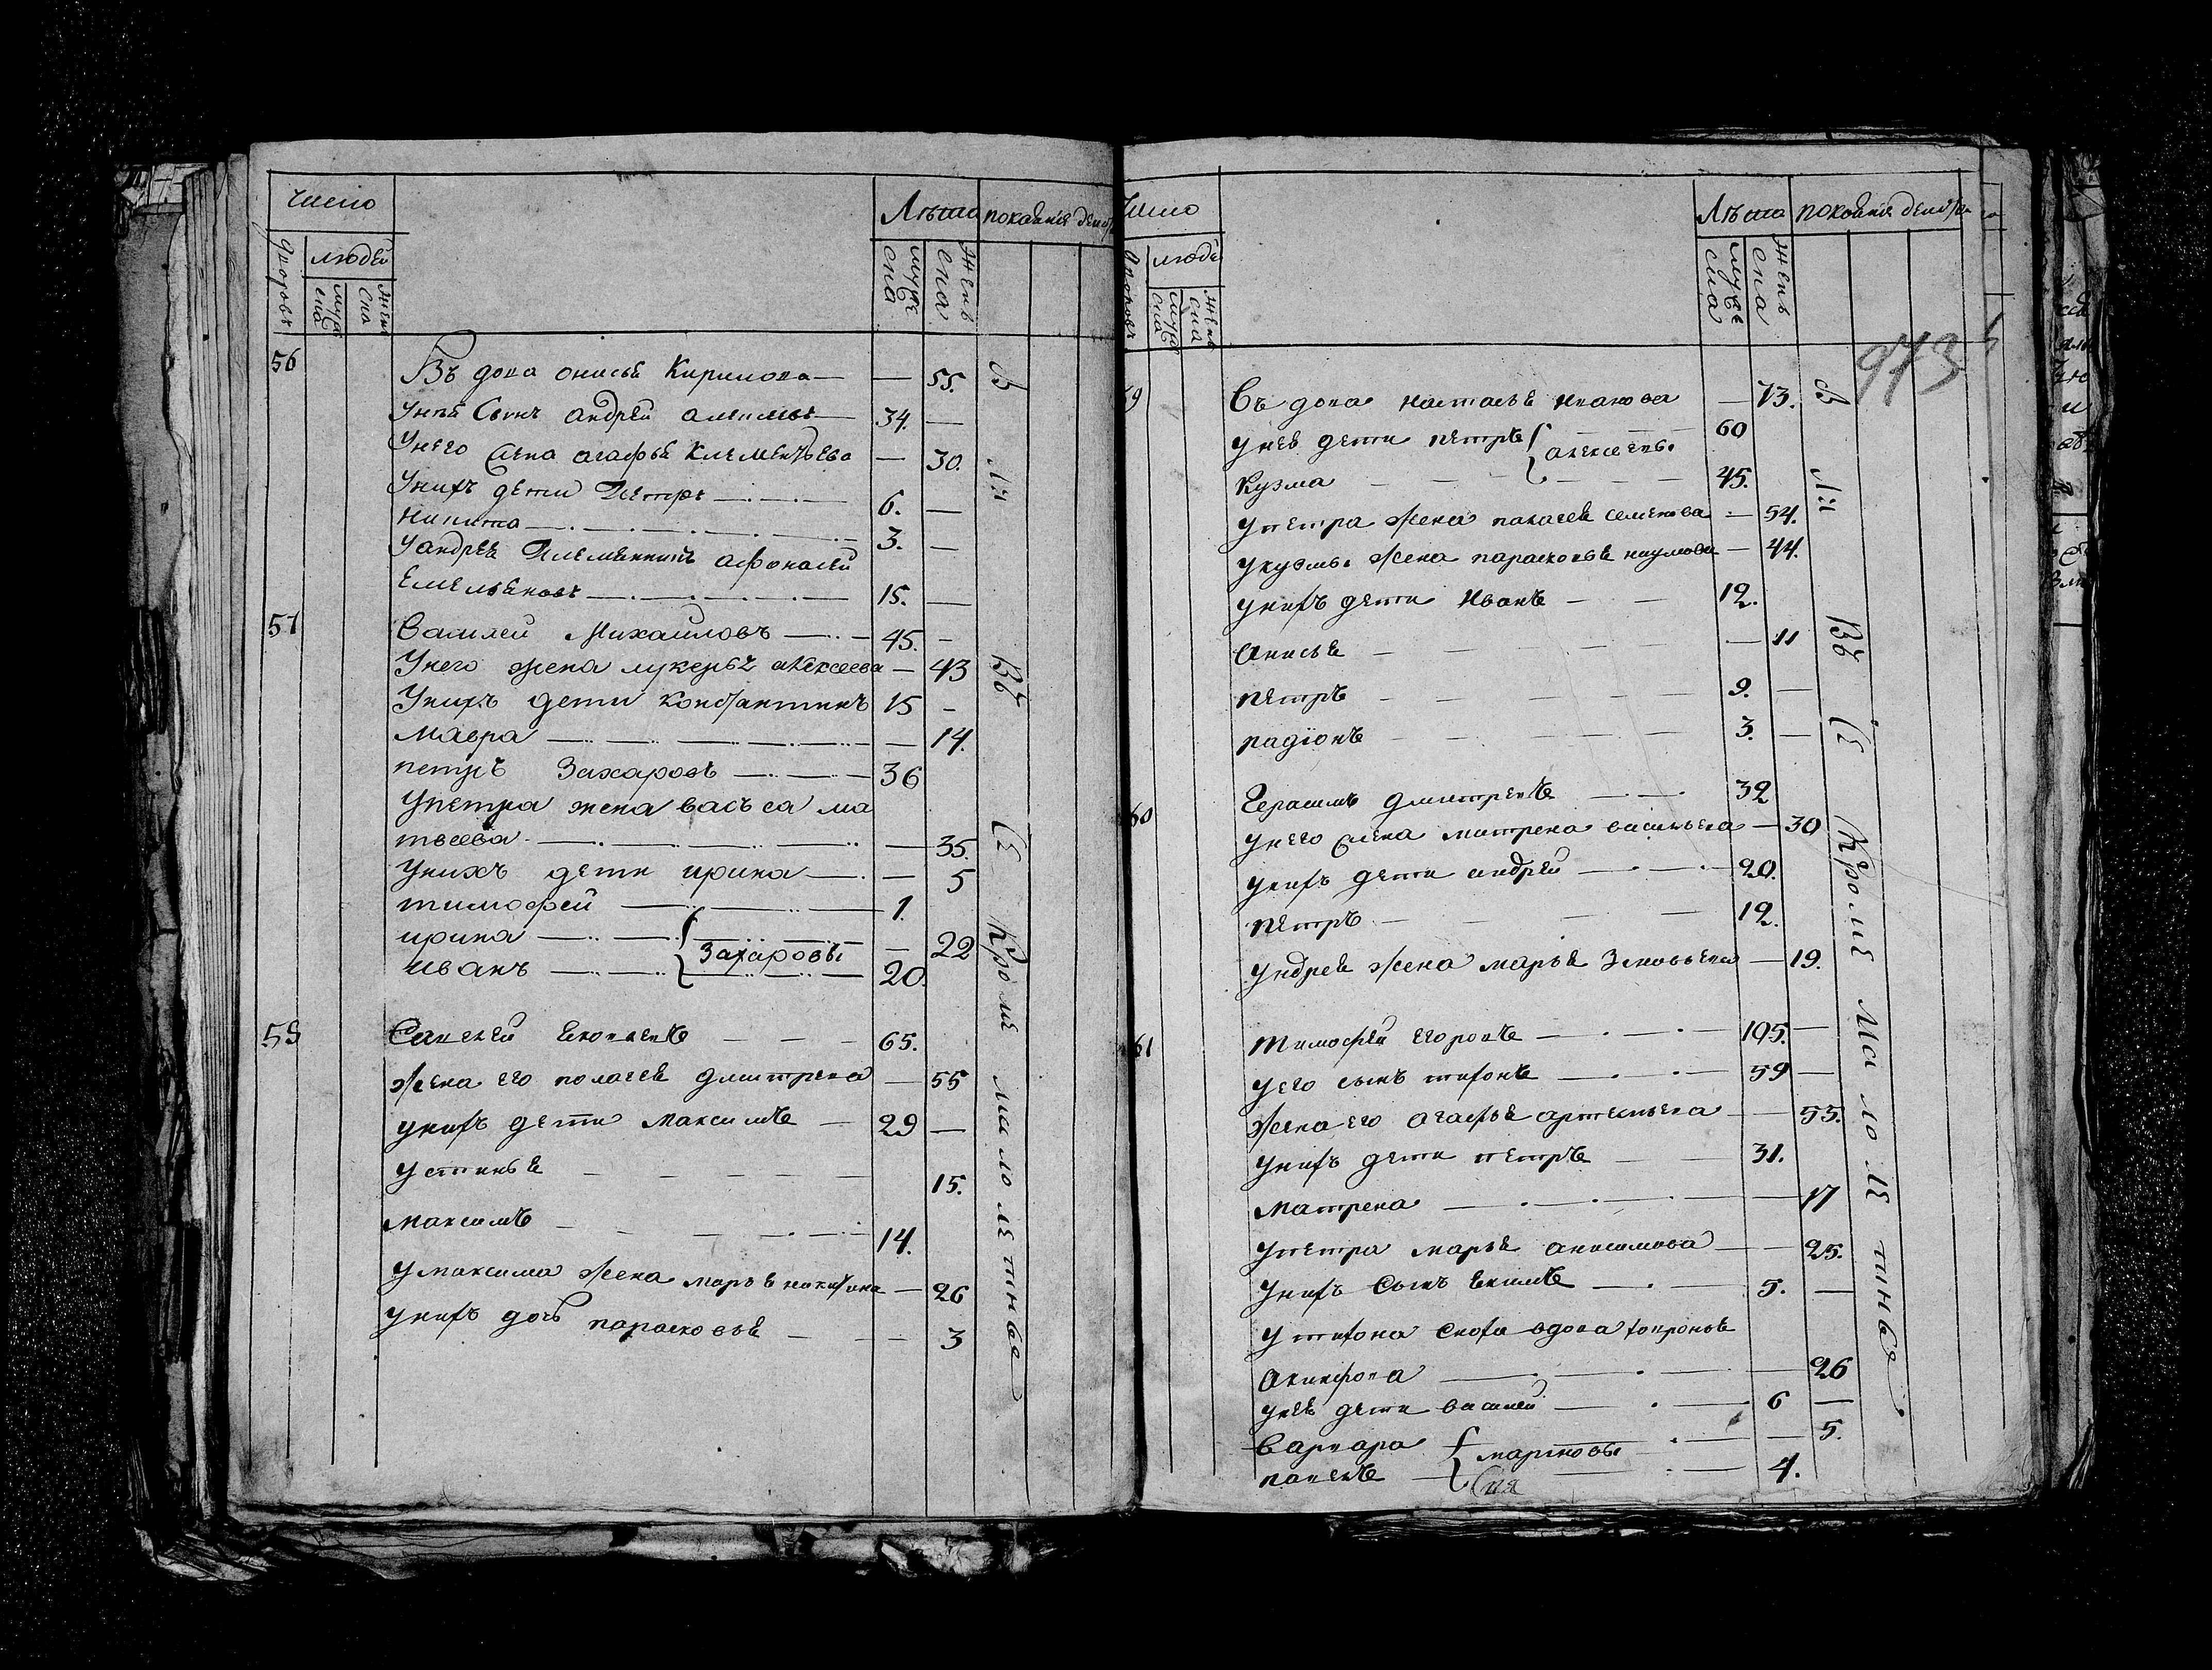 Число
Лѣта
дворовъ
людей
мужеска
женска
мужеска
женска
56
Въдова онисья Кирилова — — 55.
Унея Сынъ андрей — 34. —
Унего Жена агафья Клементьева — 30.
Унихъ дети Петръ — 6. —
Никита — 3. —
Уандрея Племянникъ афонасей
Емельяновъ — 15. —
57
Василей Михаиловъ — 45. —
Унего жена лукерья алексеева — 43
Унихъ дети константинъ 15 —
Мавра — — 14.
петръ Захаровъ — 36
Упетра жена васъса ма
твеева — — 35.
Унихъ дети ирина — — 5
тимофей — 1.
ирина — — 22
Захаровы
иванъ — 20.
58
Савелей — 65.
Жена его полагея дмитрева — 55
унихъ дети Максимъ — 29 —
устинья — 15.
максимъ — 14.
умаксима жена марья — 26
унихъ дочь парасковья — — 3
Всѣ Кроме малолетныя
Число
Лѣта
дворовъ
людей
мужеска
женска
мужеска
женска
973
Въдова настасья иванова — 73.
унея дети петръ 60
алексеевы
Кузма — 45.
упетра жена палагея семенова — 54.
укузмы жена парасковья наумова — 44.
унихъ дети Иванъ — 12.
анисья — — 11
петръ — 9. —
радіонъ — 3. —
60
Герасимъ дмитревъ — 32
унего жена матрена васильева — 30
унихъ дети андрей — 20.
петръ — 12.
уандрея жена марья Зиновьева — 19.
61
тимофей егоровъ — 105. —
уего сынъ тихонъ — 59 —
жена его агафья артемьева — — 55.
унихъ дети петръ — 31.
матрена — — 17
упетра марья анисимова — — 25.
унихъ Сынъ екимъ — 5. —
утихона сноха вдова
— 26
унея дети василей — 6 —
Варвара — — 5.
марковы
павелъ — 4.
Всѣ Кроме Малолетныя